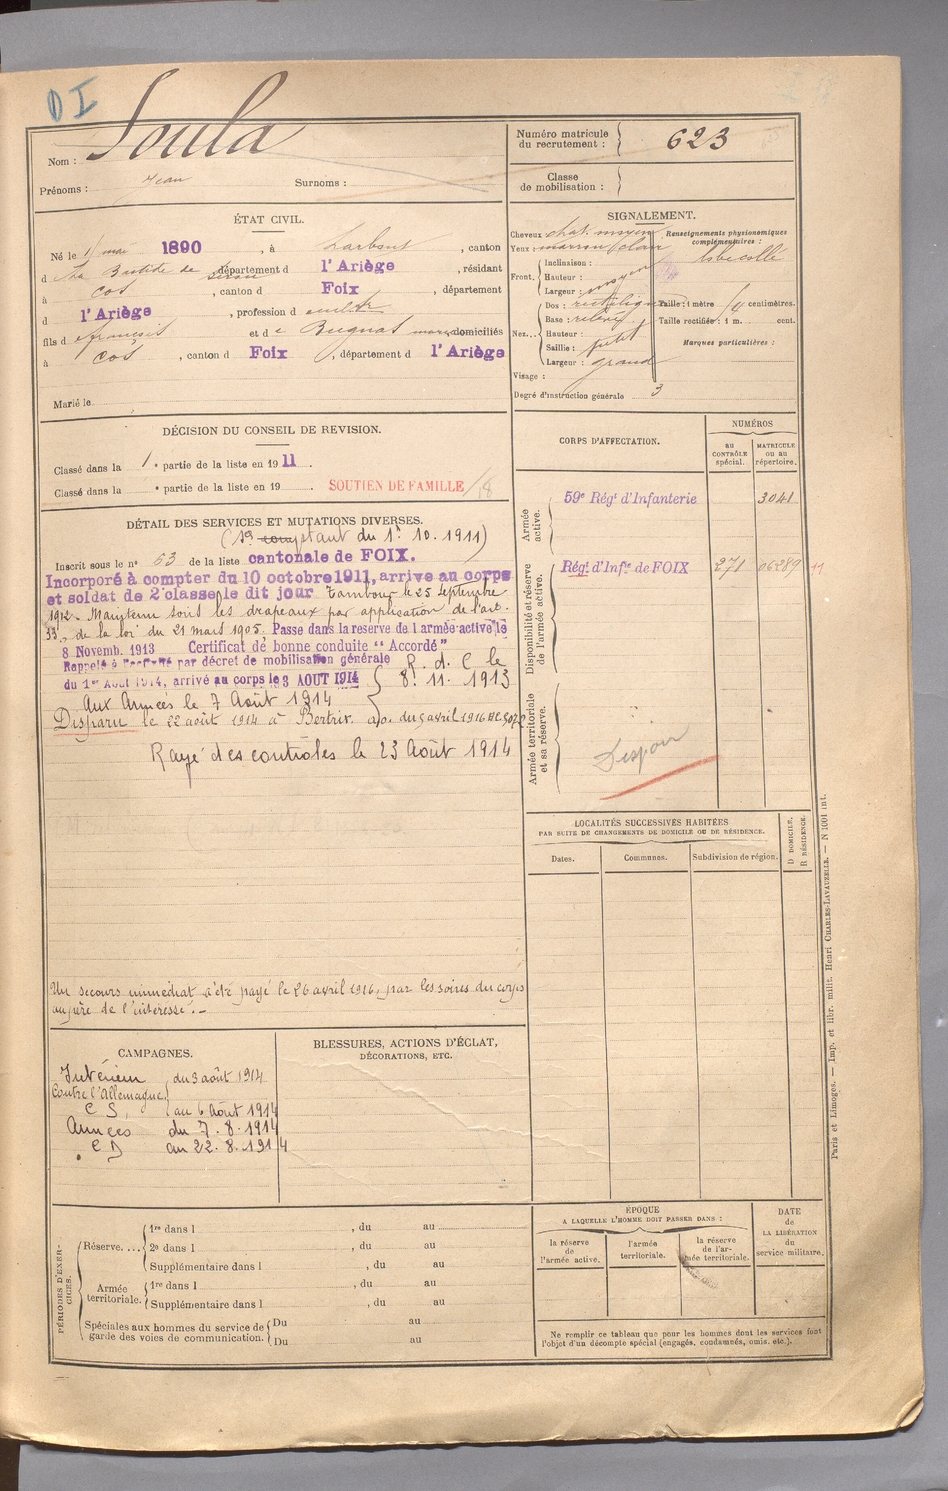 DI
Nom : Soula
Prénoms : Jean Surnoms :
Numéro matricule du recrutement : 623
Classe de mobilisation :
ÉTAT CIVIL.
Né le mai 1890, à Larbont, canton
d La Bastide de Sérou, département d l'Ariège, résidant
à Cos, canton d Foix, département
d l'Ariège, profession d
fils d François et d e Bugnas domiciliés
à Cos, canton d Foix, département d l'Ariège
Marié le
SIGNALEMENT.
Cheveux chat. moyen
Yeux : marron clair
Front. Inclinaison :
Hauteur : moyen
Largeur :
Nez. Dos : rectiligne
Base : relevé
Hauteur :
Saillie : petit
Largeur : grand
Visage :
Degré d'instruction générale 3
Renseignements physionomiques complémentaires :
Taille : 1 mètre centimètres.
Taille rectifiée : 1 m. cent.
Marques particulières :
DÉCISION DU CONSEIL DE REVISION.
Classé dans la 1 e partie de la liste en 1911.
Classé dans la e partie de la liste en 19 . SOUTIEN DE FAMILLE
DÉTAIL DES SERVICES ET MUTATIONS DIVERSES.
comptant du 1er 10. 1911)
Inscrit sous le n° 63 de la liste cantonale de FOIX.
Incorporé à compter du 10 octobre 1911, arrive au corps
et soldat de 2e classe le dit jour Tambour le 25 septembre
1912. Maintenu sous les drapeaux par application de l'art.
33, de la loi du 21 mars 1905. Passe dans la reserve de l'armée active le
8 Novemb. 1913 Certificat de bonne conduite "Accordé"
Rappelé à l'activité par décret de mobilisation générale R. d. C le
du 1er Août 1914, arrivé au corps le 3 AOUT 1914 8. 11. 1913
Aux Armées le 7 Août 1914
Disparu le 22 août 1914 à Bertrix. avis du 5 avril 1916
Rayé des contrôles le 23 Août 1914
Un secours immédiat a été payé le 26 avril 1916, par les soins du corps
au père de l'intéressé. -
CORPS D'AFFECTATION.
NUMÉROS
au CONTRÔLE spécial.
MATRICULE ou au répertoire.
Armée active.
59e Régt d'Infanterie 3041
Disponibilité et réserve de l'armée active.
Régt d'Infie de FOIX 271 06289 11
Armée territoriale et sa réserve.
Disparu
LOCALITÉS SUCCESSIVES HABITÉES
PAR SUITE DE CHANGEMENTS DE DOMICILE OU DE RÉSIDENCE.
Dates. Communes. Subdivision de région.
D DOMICILE.
R RÉSIDENCE.
CAMPAGNES.
Intérieur du 3 août 1914
Contre l'Allemagne
C S, au 6 Août 1914
Armées du 7. 8. 1914
C D au 22. 8. 1914
BLESSURES, ACTIONS D'ÉCLAT,
DÉCORATIONS, ETC.
PÉRIODES D'EXERCICES.
Réserve.... 1re dans l , du au
2e dans l , du au
Supplémentaire dans l , du au
Armée territoriale. 1re dans l , du au
Supplémentaire dans l , du au
Spéciales aux hommes du service de garde des voies de communication. Du au
Du au
ÉPOQUE
A LAQUELLE L'HOMME DOIT PASSER DANS :
la réserve de l'armée active.
l'armée territoriale.
la réserve de l'armée territoriale.
DATE de LA LIBÉRATION du service militaire.
Ne remplir ce tableau que pour les hommes dont les services font
l'objet d'un décompte spécial (engagés, condamnés, omis, etc.).
Paris et Limoges. — Imp. et libr. milit. Henri CHARLES-LAVAUZELLE. — N 1001 int.